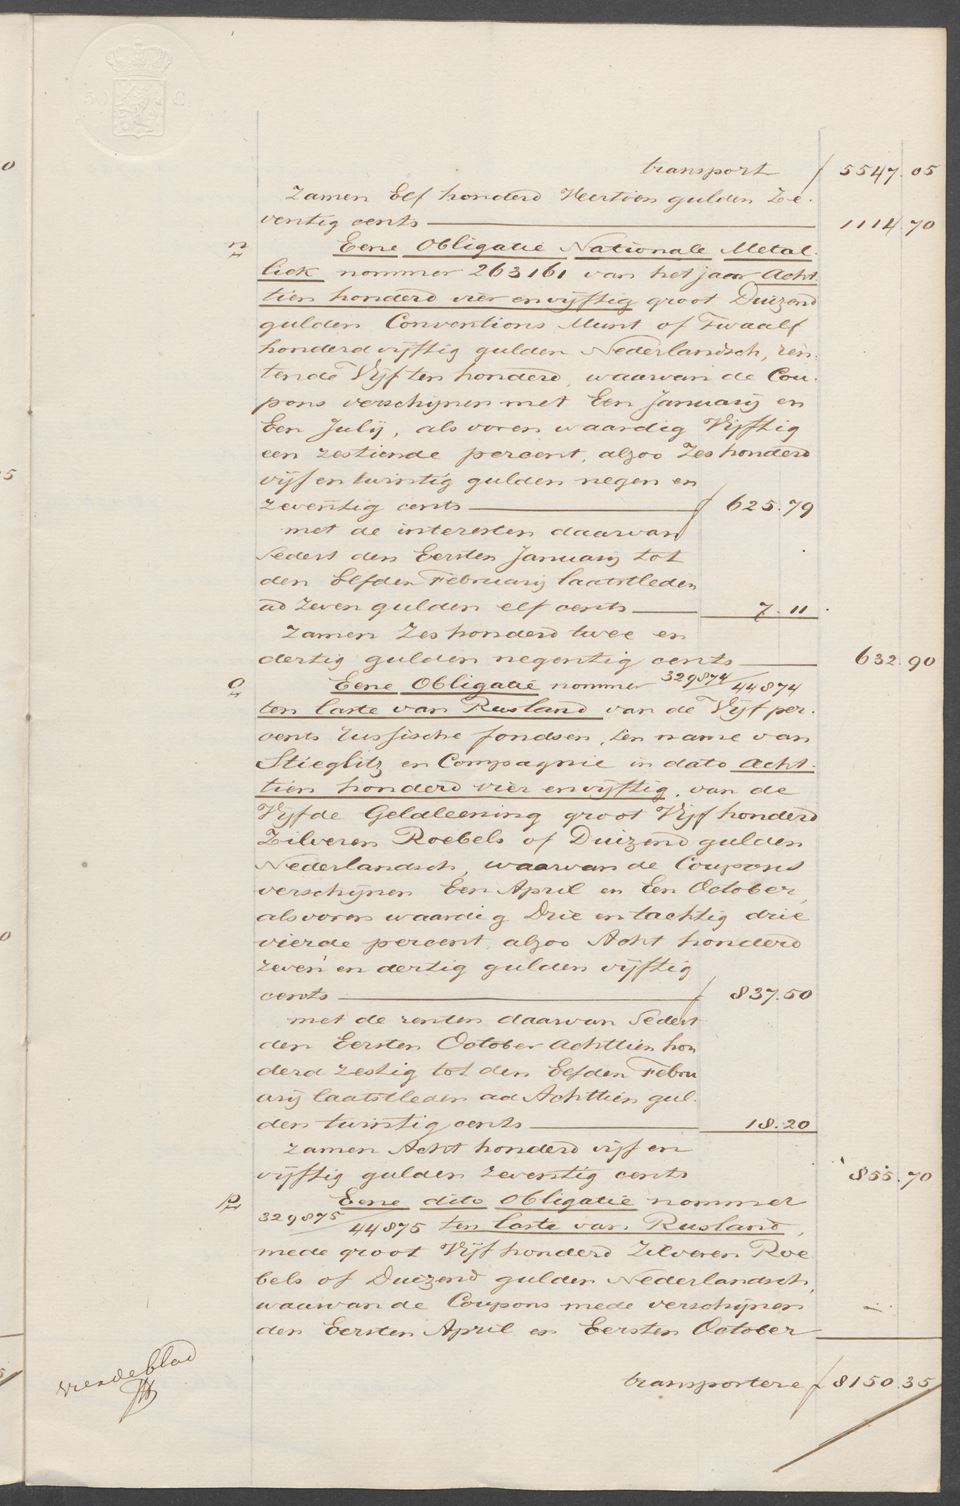 transport f 5547.05
Zamen Elf honderd Veertien gulden Ze-
ventig cents 1114.70
n Eene Obligatie Nationale Metal-
liek nommer 263161 van het jaar Acht-
tien honderd vier en vijftig groot Duizend
gulden Conventions Munt of Twaalf
honderd vijftig gulden Nederlandsch, ren-
tende Vijf ten honderd, waarvan de Cou-
pons verschijnen met Een Januarij en
Een Julij, als voren waardig Vijftig
een zestiende percent, alzoo Zes honderd
vijf en twintig gulden negen en
zeventig cents f 625.79
met de interesten daarvan
sedert den Eersten Januarij tot
den Elfden Februarij laatstleden
ad zeven gulden elf cents 7.11
Zamen Zes honderd twee en
dertig gulden negentig cents 632.90
o Eene Obligatie nommer 329874/44874
ten laste van Rusland van de Vijf per-
cents Russische fondsen, ten name van
Stieglitz en Compagnie in dato Acht-
tien honderd vier en vijftig, van de
Vijfde Geldleening groot Vijf honderd
Zilveren Roebels of Duizend gulden
Nederlandsch, waarvan de Coupons
verschijnen Een April en Een October,
als voren waardig Drie en tachtig drie
vierde percent, alzoo Acht honderd
zeven en dertig gulden vijftig
cents f 837.50
met de renten daarvan sedert
den Eersten October Achttien hon
derd zestig tot den Elfden Febru
arij laatstleden ad Achttien gul-
den twintig cents 18.20
Zamen Acht honderd vijf en
vijftig gulden zeventig cents 855.70
p Eene dito Obligatie nommer
329875/44875 ten laste van Rusland,
mede groot Vijf honderd Zilveren Roe
bels of Duizend gulden Nederlandsch,
waarvan de Coupons mede verschijnen
den Eersten April en Eersten October
transportere f 8150.35